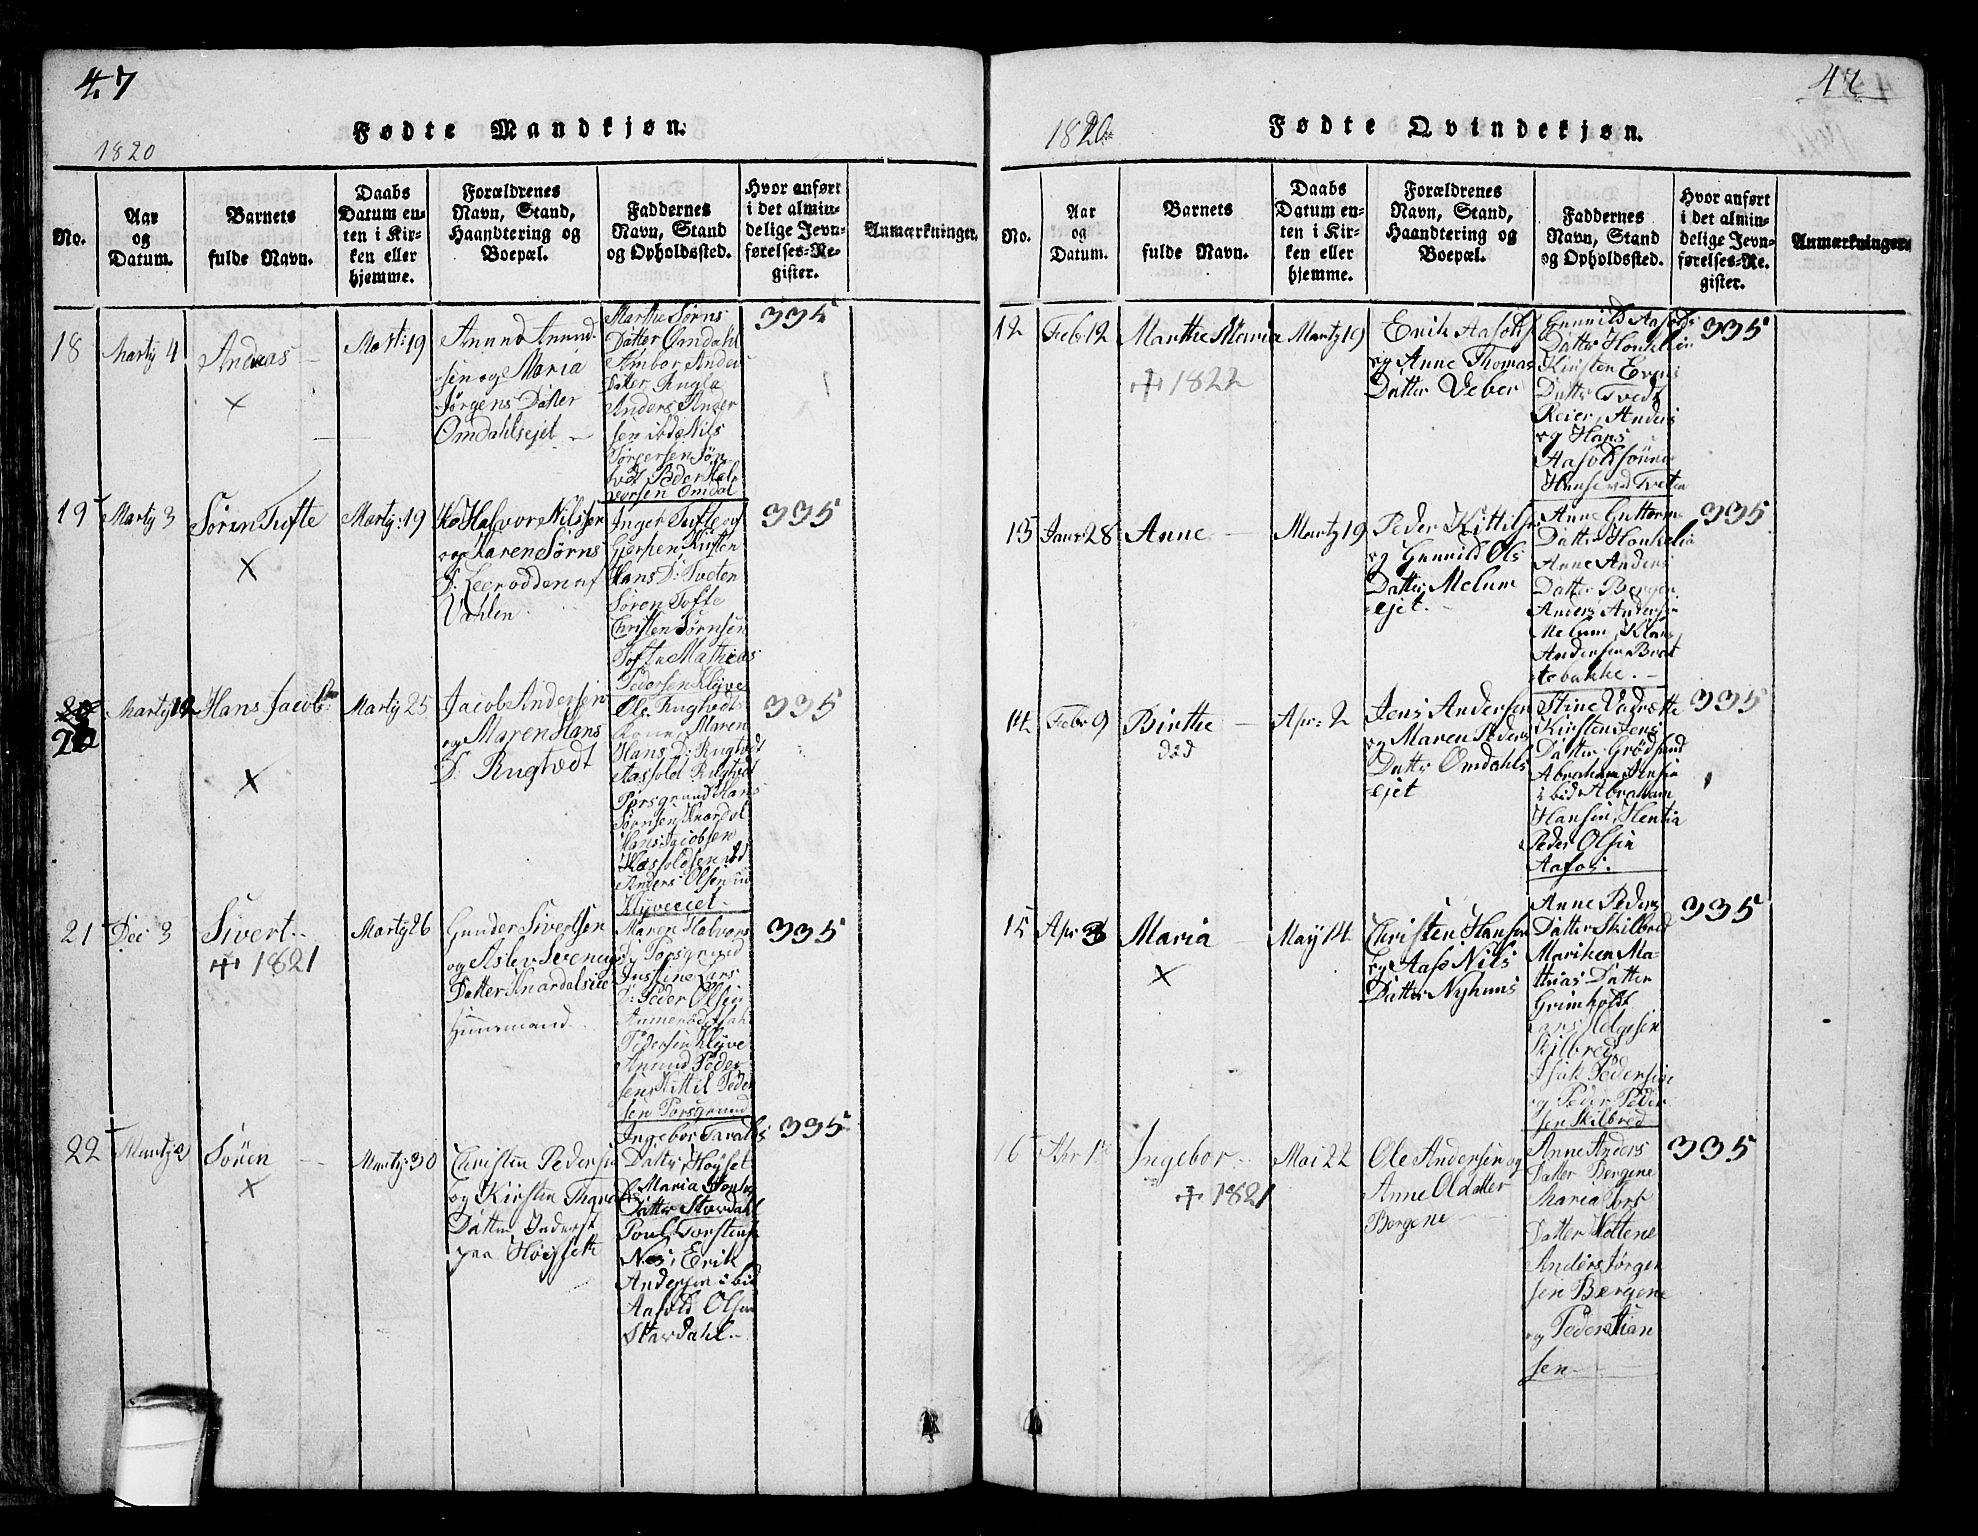 47
Fødte Mandkjøn.
1820
No.
Aar
og
Datum.
Barnets
fulde Navn.
Daabs
Datum en-
ten i Kir-
ken eller
hjemme.
Forældrenes
Navn, Stand,
Haandtering og
Boepæl.
Faddernes
Navn, Stand
og Opholdssted.
Hvor anført
i det almin-
delige Jevn-
førelses-Re-
gister.
Anmærkninger.
18
Marty 4
Andreas
×
Mart: 19
Anund Anund
sen og Maria
Jørgens Datter
Omdahlsejet
Marthe Sørns
Datter Omdahl
Ambor Anders
Datter Rugla
Anders Ander
sen ibd Nils
Jørgersen
Peder Hal
vorsen Omdal
335
19
Marty 3
Søren Tufte
×
Marty: 19
Halvor Nilssen
og Karen Sørns
D: Leerodden af
Vahlen
Inger Tufte og
Gjerpen Kirsten
Hans D: Tveten
Søren Tofte
Christen Sørnsen
Tofte Mathias
Pedersen Klyve
335
20
Marty 12
Hans Jacob
×
Marty 25
Jacob Andersen
og Maren Hans
D: Rugtvedt
Ols Rugtvedt
Kone Maren
Hans D: Rugtvedt
Aasold Rugtvedt
Porsgrund Hans
Sørnsen Knardal
Hans Jacobsen
Anders Olsen
Klyveeiet
335
21
Dec 3
Sivert
✝ 1821
Marty 26
Gunder Sivertsen
og Aslev Svenung
Datter Knardalseie
Huusmand
Maren Halvors
D: Porsgrund
Justine Lars
D: Peder Olsen
Pedersen Klyve
Anund Peder
sen Kittil Peder
sen Porsgrund
335
22
Marty
Søren
×
Marty: 30
Christen Pedersen
og Kirsten
Datter Inderst
paa Høisæth
Ingebor Taralds
Datter Høyset
Maria
Datter Stordahl
Poul Torstens
Nes, Erik
Andersen ibid
Aasold Olsen
Stavdahl
335
Fødte Qvindekjøn.
1820
No.
Aar
og
Datum.
Barnets
fulde Navn.
Daabs
Datum en-
ten i Kir-
ken eller
hjemme.
Forældrenes
Navn, Stand,
Haandtering og
Boepæl.
Faddernes
Navn, Stand
og Opholdssted.
Hvor anført
i det almin-
delige Jevn-
førelses-Re-
gister.
Anmærkninger.
12
Febr 12
Marthe Maria
✝ 1822
Marty 19
Erik Aasolds
og Anne Thomas
Datter Veber
Gunnild Aasolds
Datter Honkelia
Kirsten Evens
Datter Tvedt
Reier, Anders
og Hans
335
13
Janr 28
Anne
Marty 19
Peder Kittilsen
og Gunnild Ols
Datter Melum
ejet.
Anne Guttorms
Datter Honkelia
Anne Anders
Datter Bergen
Anders Andersen
Melum, Klaus
Andersen Brat
tebakke.
335
14
Febr 9
Birthe
død
Apr: 2
Jens Andersen
og Maren Peders
Datter Omdahls
ejet
Stine
Kirsten Jens
Datter Grødsund
Abraham Jensen
ibid Abraham
Hansen, Hentia
Peder Olsen
Aafos.
335
15
Apr 3
Maria
×
May 14
Christen Hansen
og Aase Nils
Datter Nyhuus
Anne Peders
Datter Skilbred
Mariken Ma-
thias Datter
Grimholt
Hans Helgesen
Skilbred
Isak Pedersen
og Peder Peder
sen Skilbred
335
16
Apr 1
Ingebor
✝ 1821
Mai 22
Ole Andersen og
Anne Oldatter
Bergene
Anne Anders
Datter Bergene
Maria Tors
Datter Holtene
Anders Jørgen
sen Bergene
og Peder
sen
335